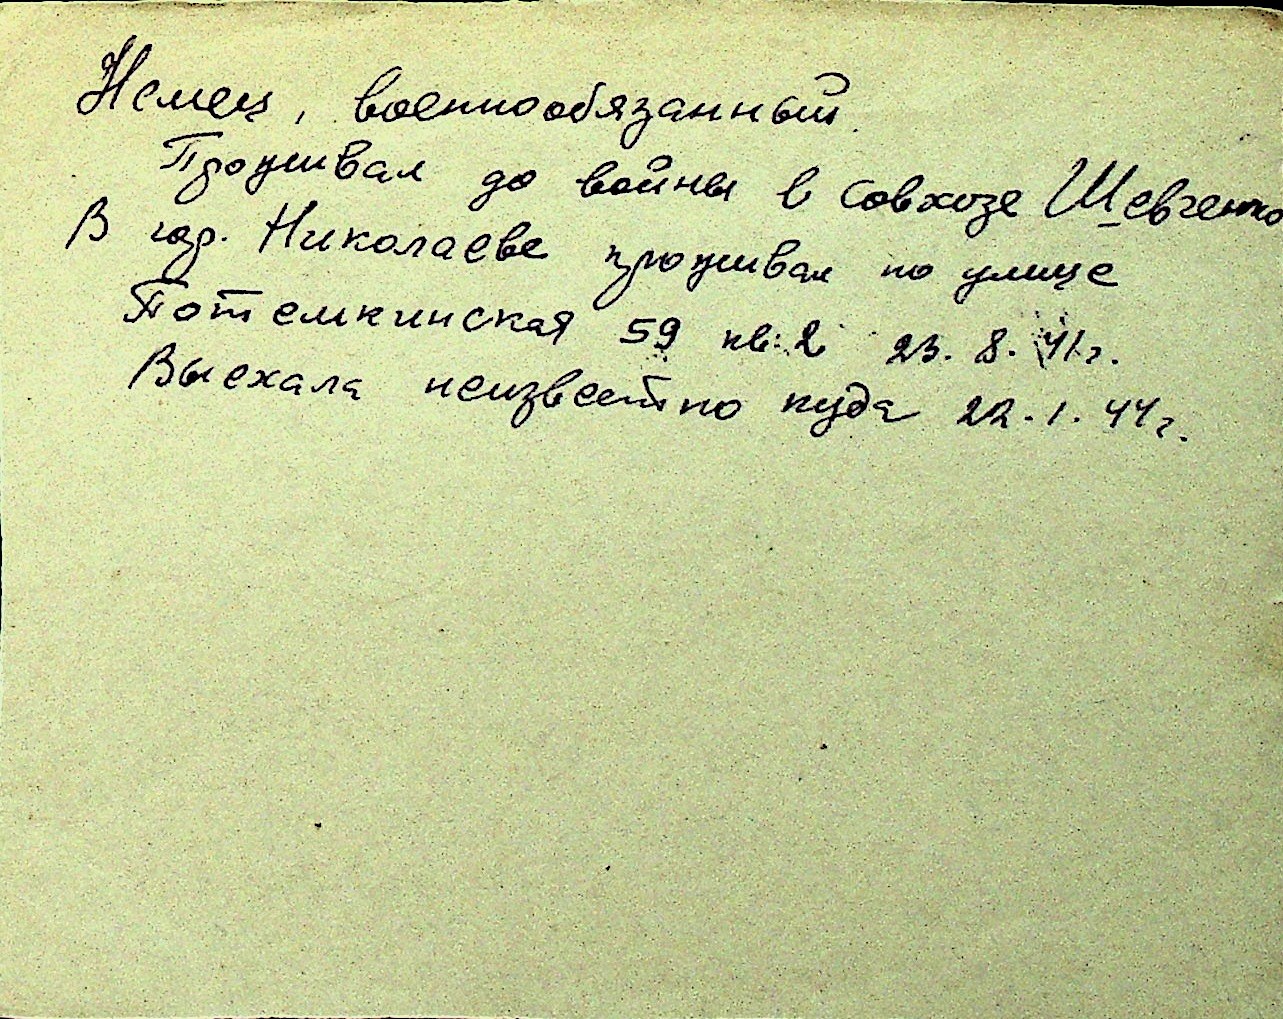 Немец, военнообязанный.
Проживал до войны в совхозе Шевченко
В гор. Николаеве проживал по улице
Потемкинская 59 кв. 2 23. 8. 41 г.
Выехала неизвестно куда 22. 1. 44 г.